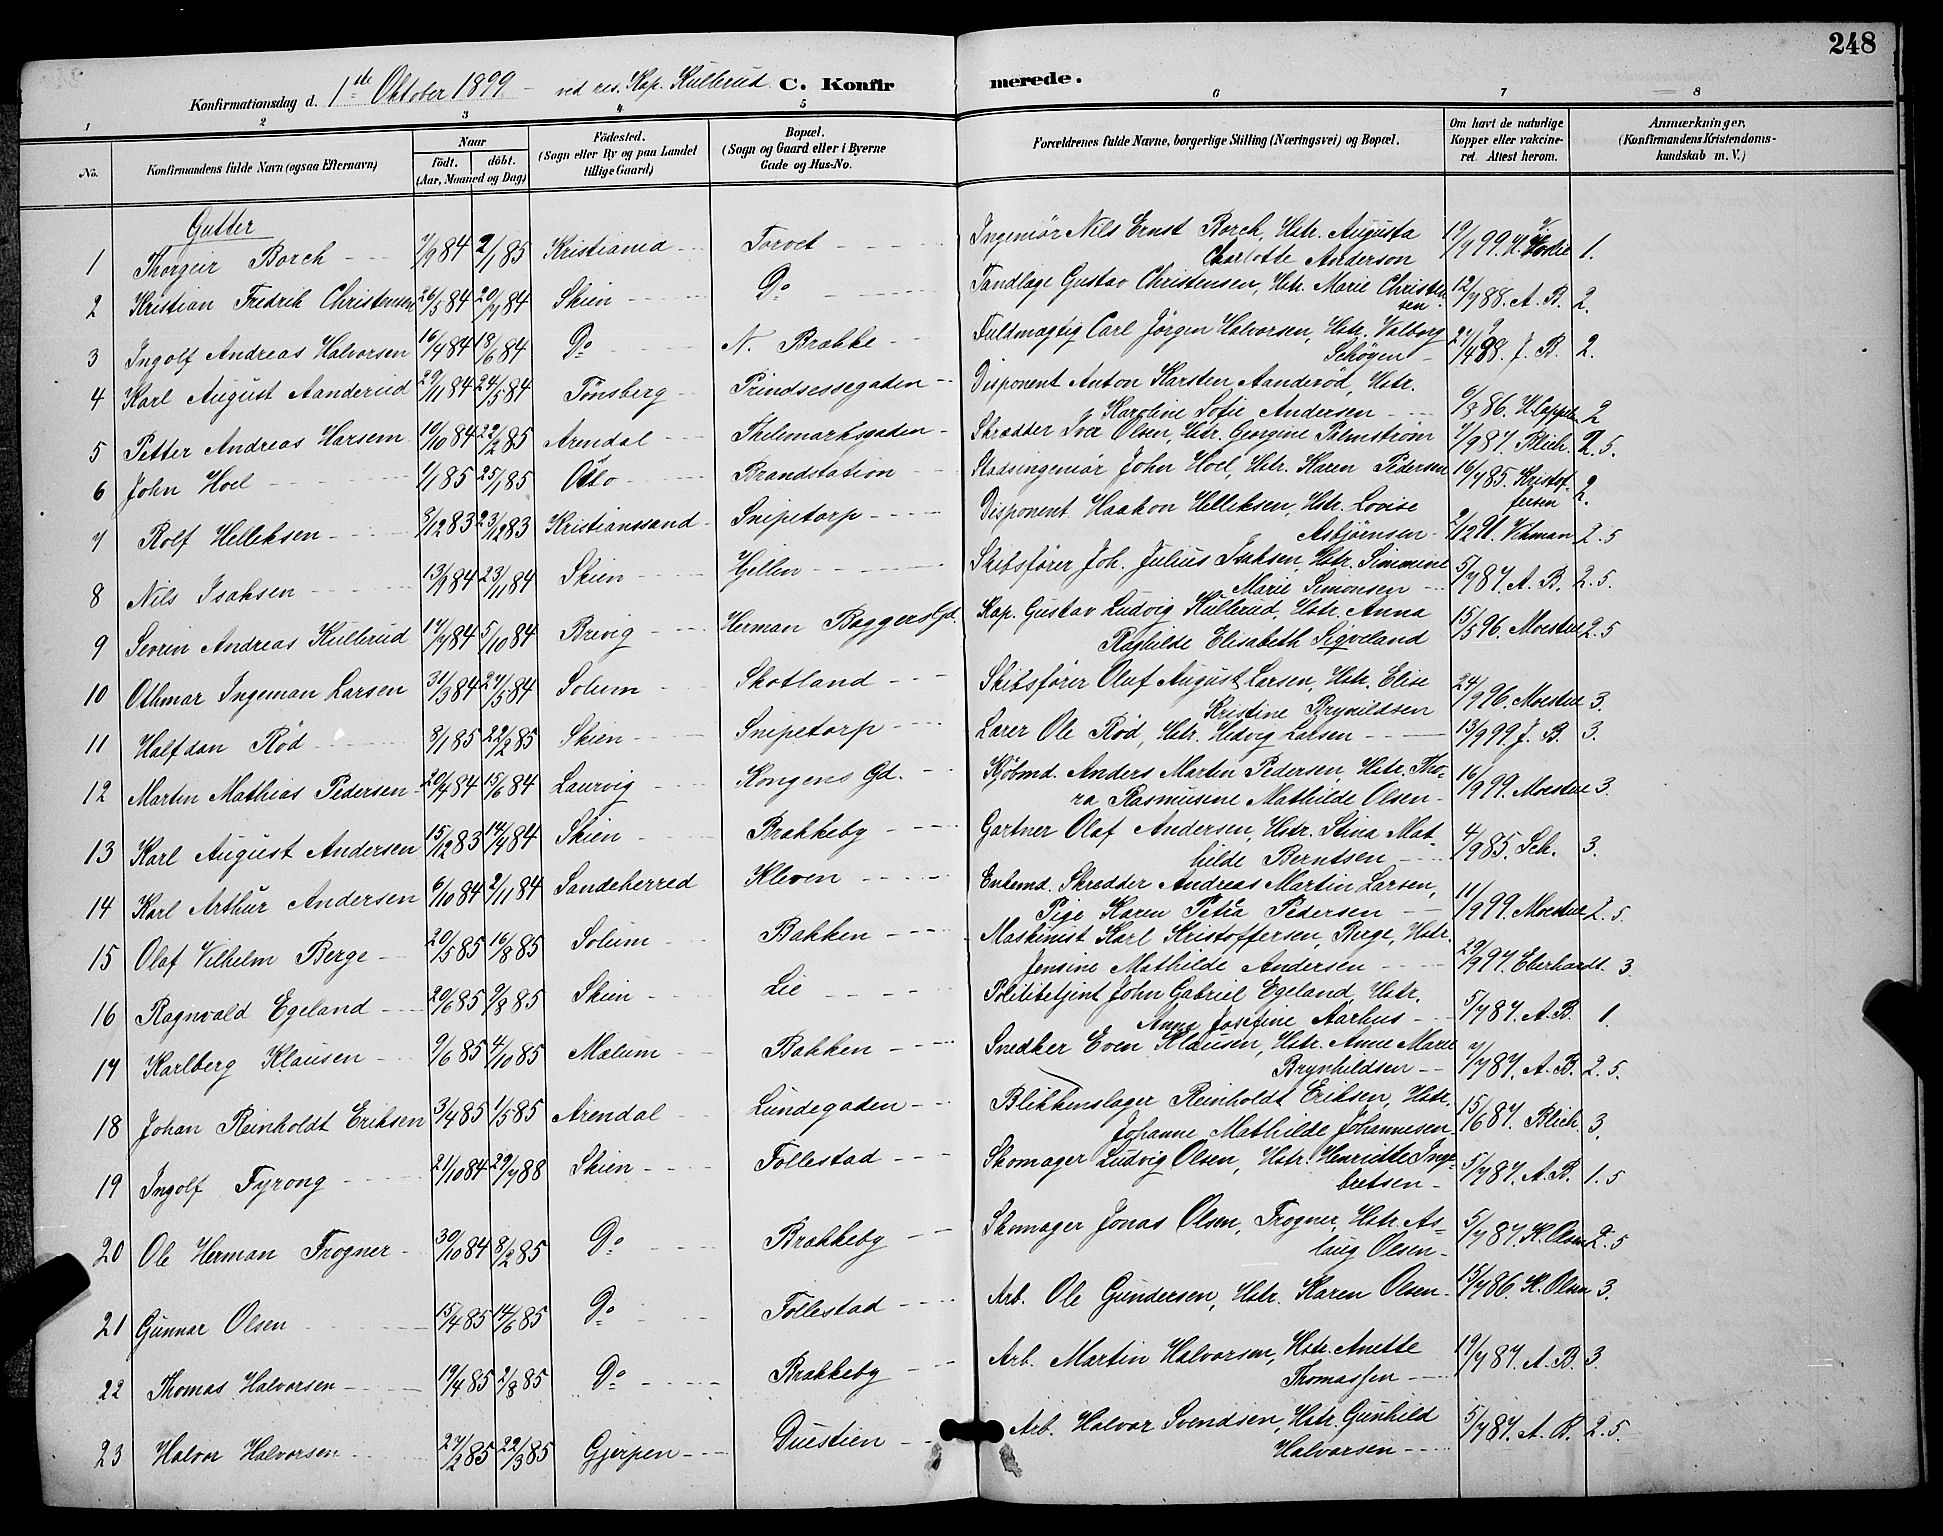 248
Konfirmationsdag d. 1ste Oktober 1899 - ved res. Kap. Kullerud C. Konfir merede.
1 2 3 4 5 6 7 8
No. Konfirmandens fulde Navn (ogsaa Efternavn) Naar født. døbt. (Aar, Maaned og Dag) Fødested. (Sogn eller By og paa Landet tillige Gaard) Bopæl. (Sogn og Gaard eller i Byerne Gade og Hus-No. Forældrenes fulde Navne, borgerlige Stilling (Næringsvei) og Bopæl. Om havt de naturlige Kopper eller vakcineret. Attest herom. Anmærkninger, (Konfirmandens Kristendomskundskab m. V.)
Gutter
1 Thorgeir Borch 7/9 84 2/1 85 Kristiania Torvet Ingeniør Nils Ernst Borch, Hstr. Augusta Charlotte Anderson 19/9 99. 1.
2 Kristian Fredrik Christensen 26/5 84 20/7 84 Skien Do Tandlæge Gustav Christensen, Hstr. Marie Christensen 12/7 88. A. B. 2.
3 Ingolf Andreas Halvorsen 16/4 84 18/6 84 Do N. Brække Fuldmægtig Carl Jørgen Halvorsen, Hstr. Valborg Schøyen 88. J. B. 2.
4 Karl August Aanderud 24/5 84 Tønsberg Prindsessegaden Disponent Anton Karsten Aanderød, Hstr. Karoline Sofie Andersen 6/8 86. 2
5 Petter Andreas Harsem 10/10 84 22/2 85 Arendal Thelemarksgaden Skrædder Iver Olsen, Hstr. Georgine Palmstrøm 7/9 87. Blich. 2.5.
6 John Hoel 1/1 85 25/1 85 Oslo Brandstation Stadsingeniør John Hoel, Hstr. Karen Pedersen 16/7 85. Kristoffersen 2.
7 Rolf Helleksen 8/12 83 23/12 83 Kristianssand Snipetorp Disponent Haakon Helleksen, Hstr. Lovise Asbjørnsen 2/12 91. 2.5
8 Nils Isaksen 13/9 84 23/11 84 Skien Hjellen Skibsfører Joh. Julius Isaksen, Hstr. Simmine Marie Simonsen 5/7 87. A. B. 2.5.
9 Severin Andreas Kullerud 17/9 84 5/10 84 Brevig Herman Baggers Gd. Kap. Gustav Ludvig Kullerud, Hstr. Anna Raghilde Elisabeth Sigveland 15/5 96. Moestue 2.5
10 Othmar Ingeman Larsen 31/3 84 27/5 84 Solum Skotland Skibsfører Oluf August Larsen, Hstr. Elise Kristine Brynildsen 24/9 96. Moestue 3.
11 Halfdan Rød 8/1 85 22/2 85 Skien Snipetorp Lærer Ole Rød, Hstr. Hedvig Larsen 13/9 99. J. B. 3.
12 Martin Mathias Pedersen 20/4 84 15/6 84 Laurvig Kongens Gd. Kjøbmd. Anders Martin Pedersen, Hstr. Thora Rasmusine Mathilde Olsen 16/9 99. Moestue 3.
13 Karl August Andersen 15/12 83 14/4 84 Skien Brækkeby Gartner Olaf Andersen, Hstr. Stina Mathilde Berntsen 4/9 85. Sch. 3.
14 Karl Arthur Andersen 6/10 84 2/11 84 Sandeherred Kleven Enkemd. Skrædder Andreas Martin Larsen, Pige Karen Petra Pedersen 11/9 99. Moestue 2.5.
15 Olaf Vilhelm Berge 20/5 85 16/8 85 Solum Bakken Maskinist Karl Kristoffersen, Berge, Hstr. Jensine Mathilde Andersen 29/9 97. Eberhardt. 3.
16 Ragnvald Egeland 20/6 85 9/8 85 Skien Lie Politibetjent John Gabriel Egeland, Hstr. Anna Josefine Aarhus 5/7 87. A. B. 1.
17 Karlberg Klausen 9/6 85 4/10 85 Mælum Bakken Snedker Even Klausen, Hstr. Anne Marie Brynhildsen 7/7 87. A. B. 2.5.
18 Johan Reinholdt Eriksen 3/4 85 1/5 85 Arendal Lundegaden Blikkenslager Reinholdt Eriksen, Hstr. Johanne Mathilde Johannesen 15/6 87. Blich. 3.
19 Ingolf Fyrong 21/10 84 29/7 88 Skien Follestad Skomager Ludvig Olsen, Hstr. Henriette Ingebretsen 5/7 87. A. B. 1.5
20 Ole Herman Frogner 30/10 84 8/2 85 Do Brækkeby Skomager Jonas Olsen, Frogner, Hstr. Aslaug Olsen 5/7 87. K. Olsen 2.5
21 Gunnar Olsen 15/4 85 14/6 85 Do Follestad Arb. Ole Gundersen, Hstr. Karen Olsen 15/7 86. K. Olsen 3.
22 Thomas Halvorsen 19/4 85 2/8 85 Do Brækkeby Arb. Martin Halvorsen, Hstr. Anette Thomassen 19/7 87. A. B. 3.
23 Halvor Halvorsen 27/2 85 22/3 85 Gjerpen Duestien Arb. Halvor Svendsen, Hstr. Gunhild Halvorsen 5/7 87. A. B. 2.5.